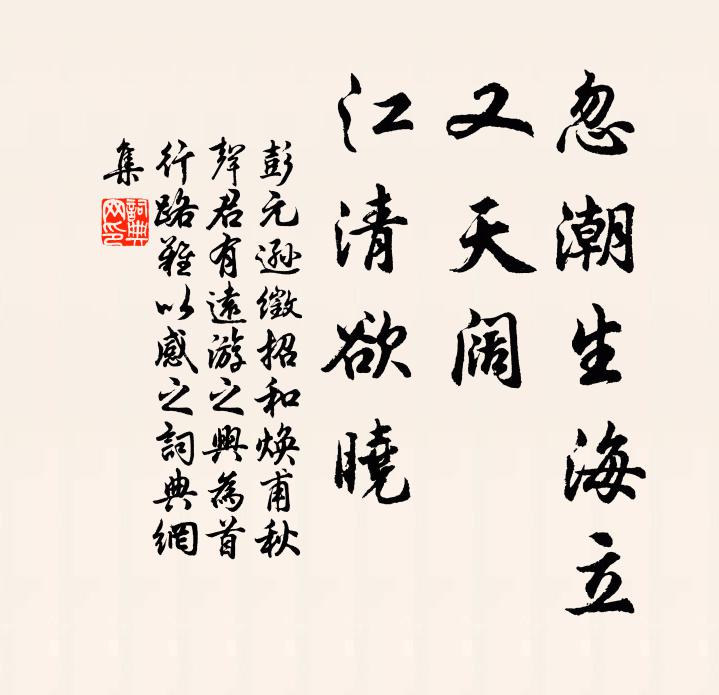 忽潮生海立
又天阔
江清欲曉
彭元遜徵招和焕甫秋
聲君有遠游之興為首
行路難以感之詞典網
集
詞典網印